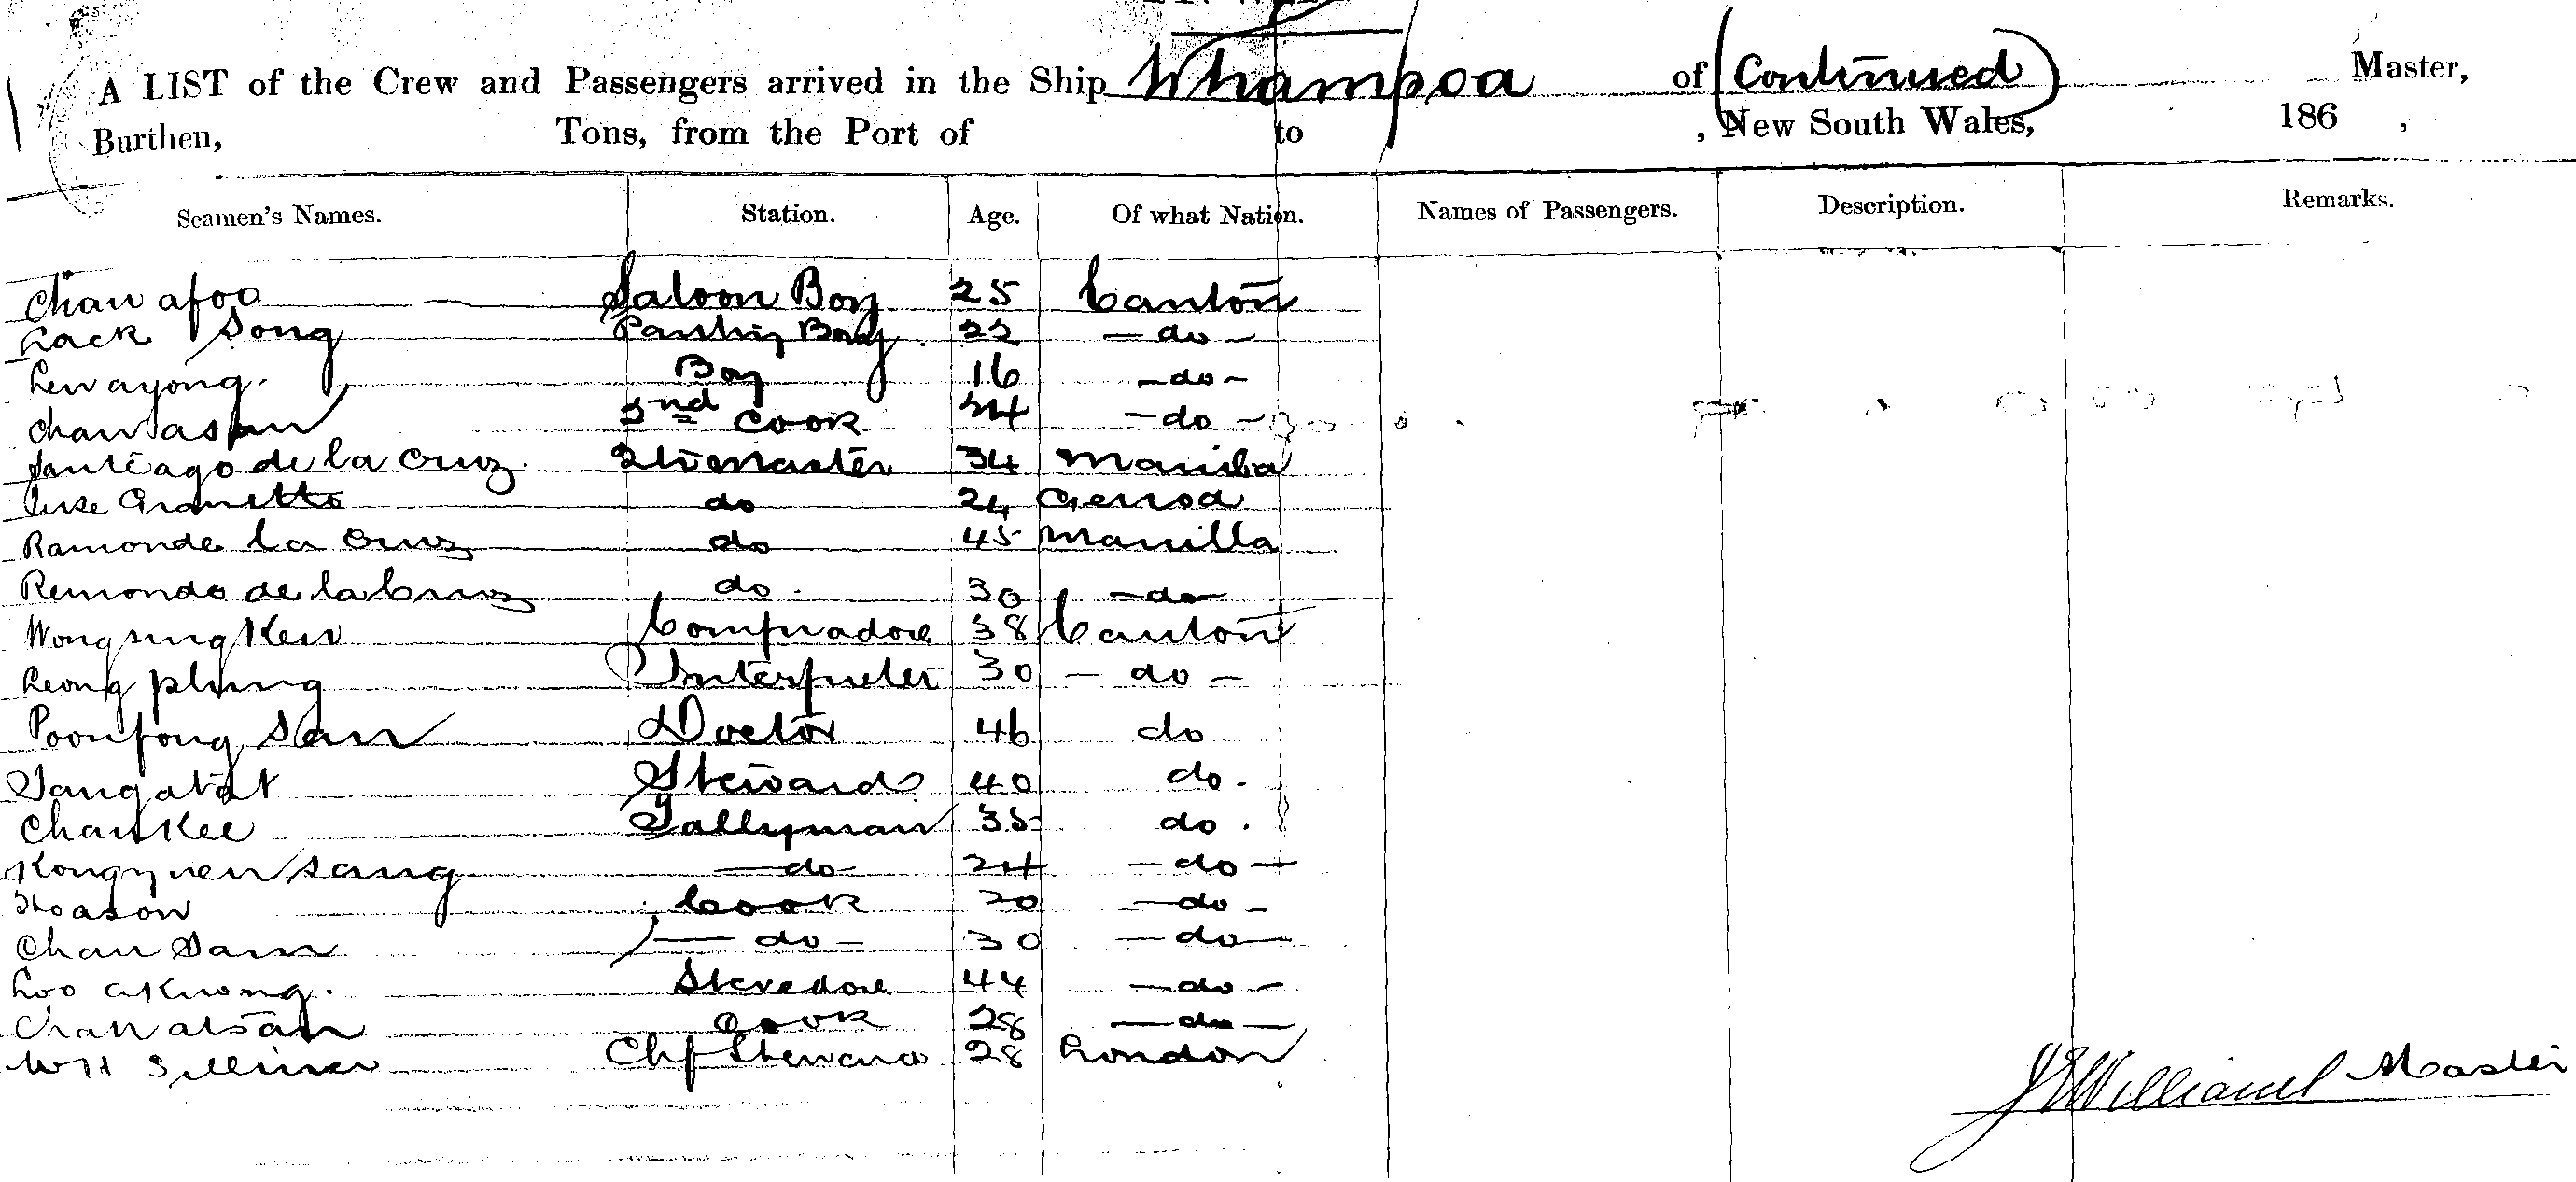 A LIST of the Crew and Passengers arrived in the Ship Whampoa of (Continued) Master,
Burthen, Tons, from the Port of to , New South Wales, 186 ,
Seamen's Names. Station. Age. Of what Nation. Names of Passengers. Description. Remarks.
Chan afoo Saloon Boy 25 Canton
Lack Song Pantry Boy 22 - do -
Lew ayong. Boy 16 - do -
Chan asam 2nd Cook 24 - do -
Santiago de la Cruz. Qtr Master 34 Manila
Granetto do 24 Genoa
Ramonde la Cruz do 45 Manilla
Remondo de la Cruz do 30 - do -
Wong sing Kew Compradore 38 Canton
Leong phing Interpreter 30 - do -
Poon fong San Doctor 46 do
Tang atat Steward 40 do.
Chan Kee Tallyman 35 do.
Kong yuen sang - do 24 - do -
Hoason Cook 20 - do -
Chan Sam - do - 30 - do -
Loo akwong. Stevedore 44 - do -
Chan atsan Cook 28 - do -
WH Chf Steward 28 London
Williams Master